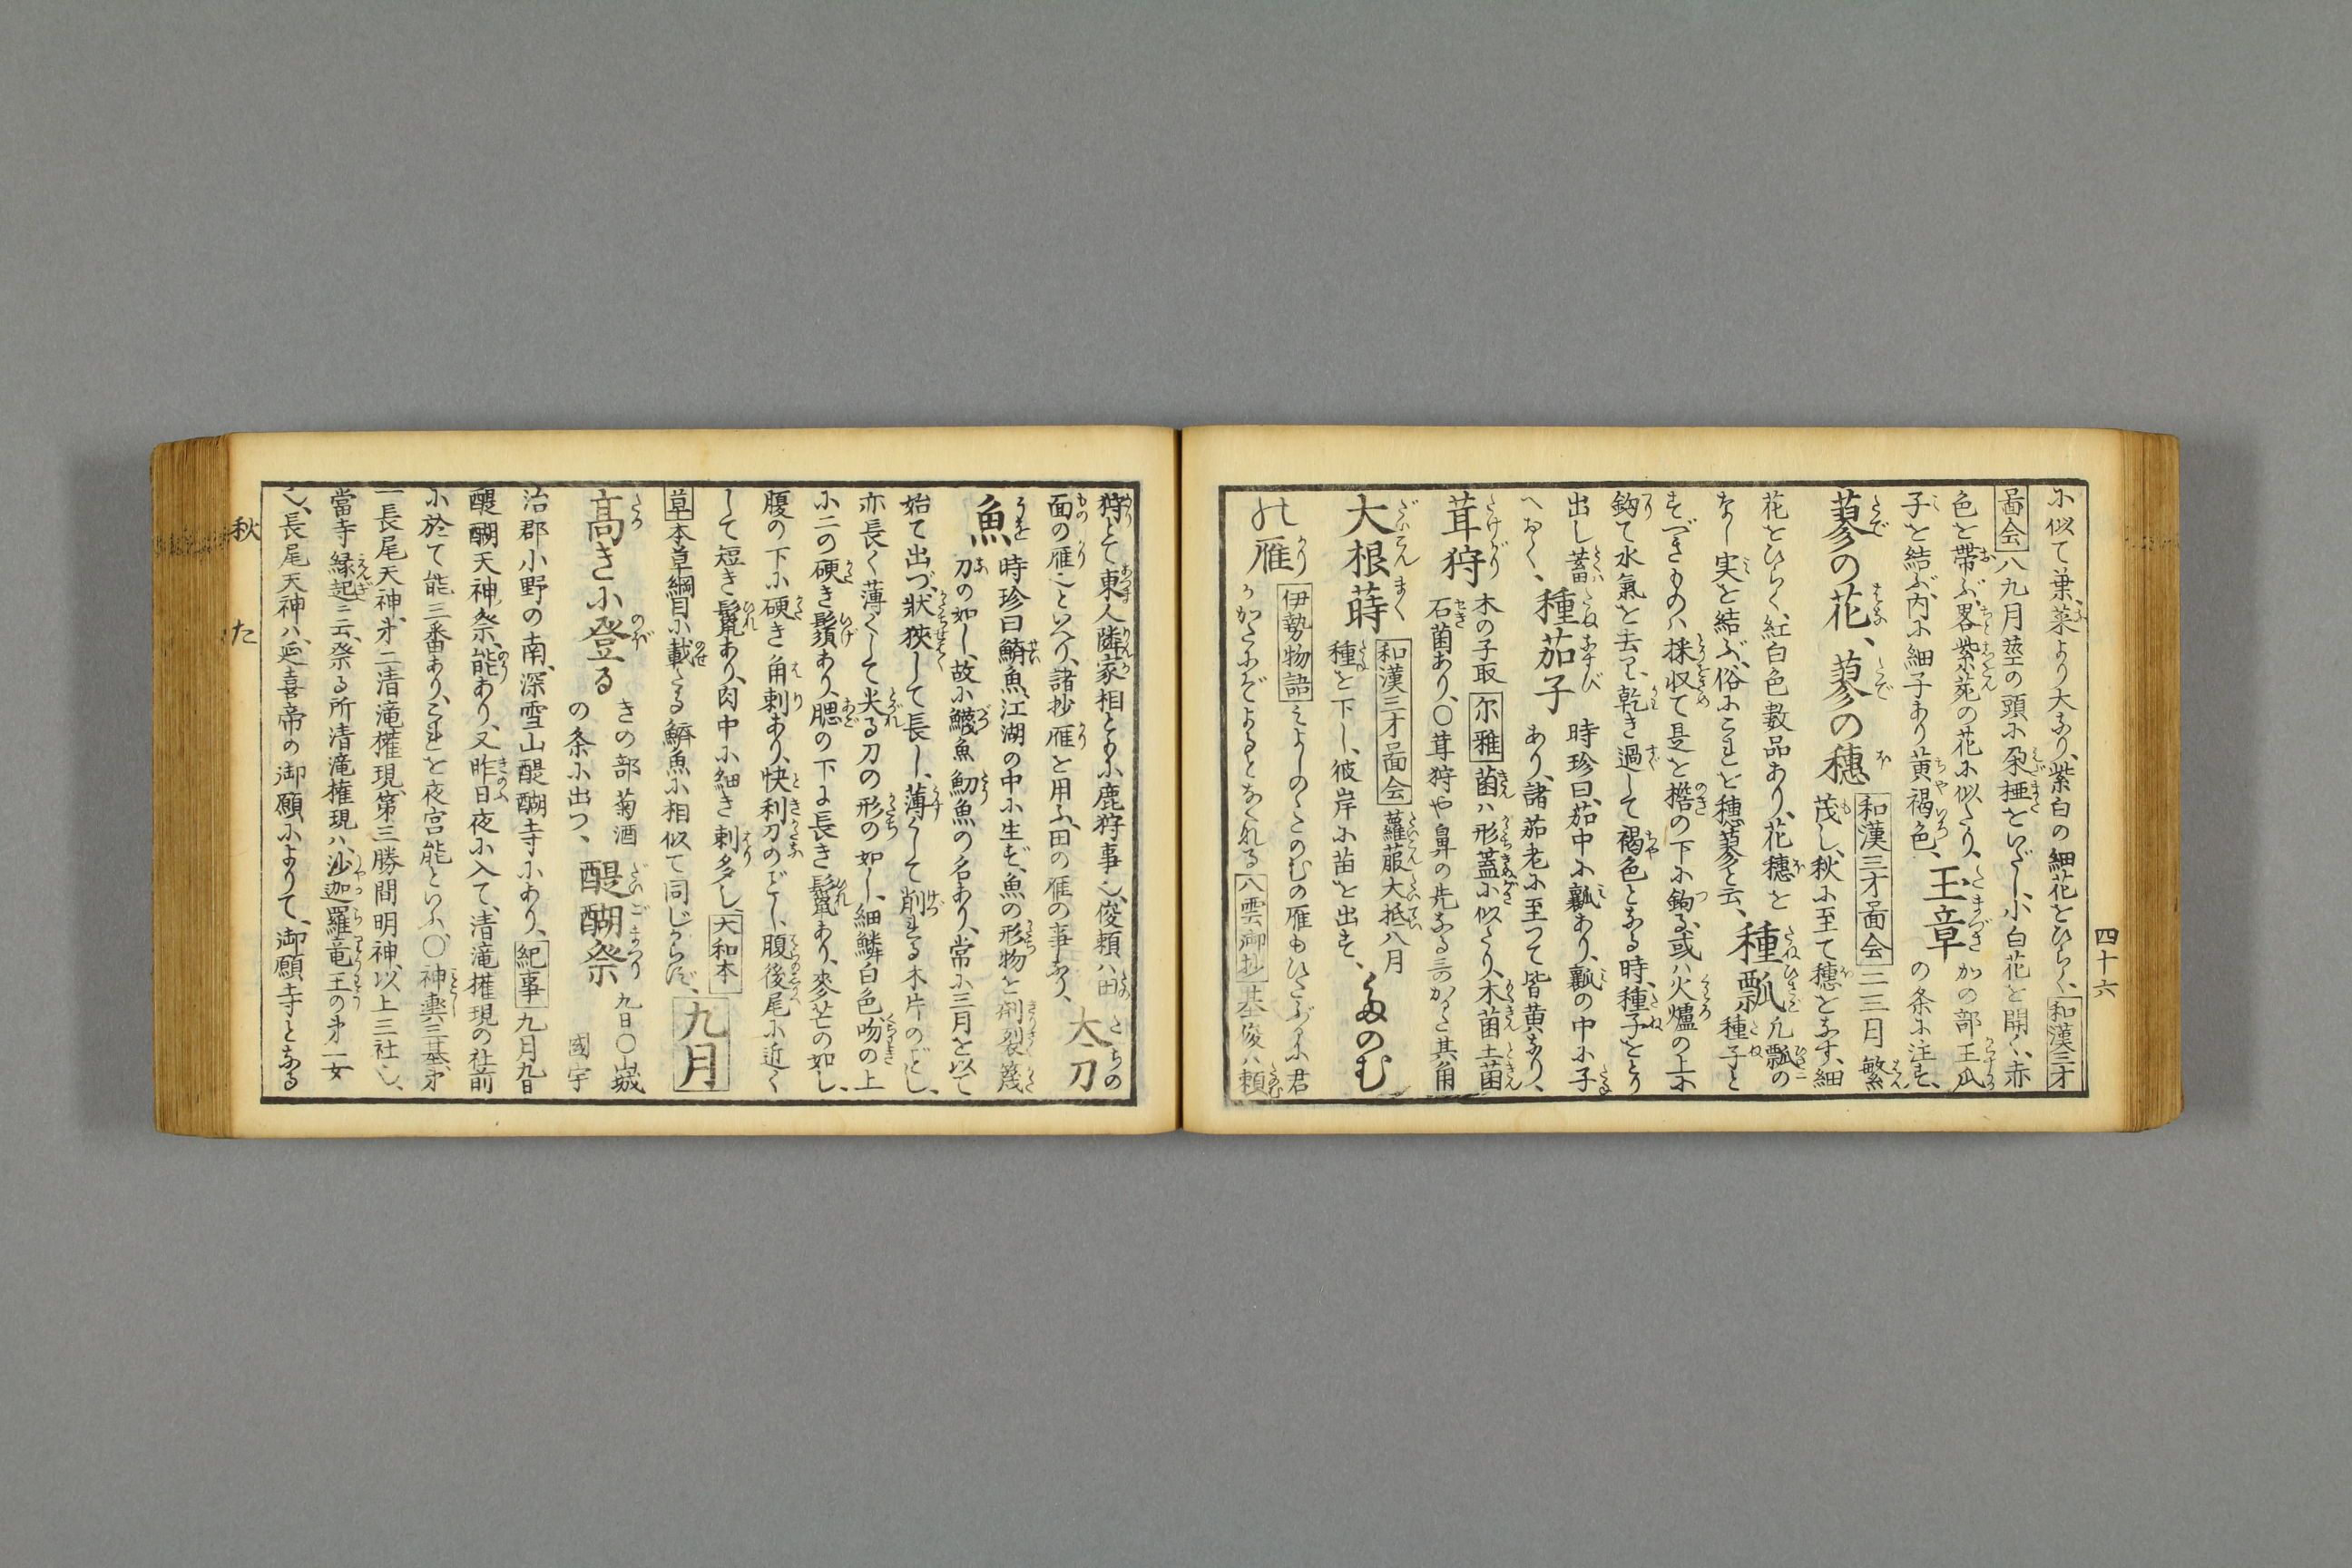 四十六
に似て葉、菜より大なり、紫白の細花をひらく、和漢三才
啚会八九月莖の頭に朶椏をいだし、小白花を開く、赤
色を帶ぶ、畧紫菀の花に似たり、玉章 かの部王瓜
子を結ぶ、内に細子あり黄褐色、の条に注す、
蓼の花、蓼の穗 和漢三才啚会 二三月繁
茂し、秋に至て穗をなす、細
花をひらく、紅白色數品あり、花穗を
なし実を結ぶ、俗にこれを穗蓼と云、種瓢 凡瓢の種子と
すべきものハ採収て是を檐の下に鈎る、或ハ火爐の上に
鈎て水氣を去り、乾き過して褐色となる時、種子をとり
出し蓄へおく、種茄子 時珍曰、茄中に瓤あり、瓤の中に子
あり、諸茄老に至つて皆黄なり、
茸狩 木の子取 尓雅 菌ハ形蓋に似たり、木菌土菌
石菌あり、〇茸狩や鼻の先なる哥がるた其角
大根蒔 和漢三才啚会 蘿蔔大抵八月
種を下し、彼岸に苗を出す、たのむ
の雁 伊勢物語 みよしのゝたのむの雁もひたぶるに君
がかたにぞよるとなれる 八雲御抄 基俊ハ頼
狩とて東人隣家相ともに鹿狩事也、俊頼ハ田
面の雁也といへり、諸抄雁と用ふ、田の雁の事なり、太刀
魚 時珍曰鱭魚、江湖の中に生ず、魚の形物を𠜎裂篾
刀の如し、故に鱴魚魛魚の名あり、常に三月を以て
始て出づ、狀狹して長し、薄くして削れる木片のごとし、
亦長く薄くして尖る刀の形の如し、細鱗白色、吻の上
に二の硬き鬚あり、腮の下に長き鬣あり、麥芒の如し、
腹の下に硬き角刺あり、快利刀のごとし、腹後尾に近く
して短き鬣あり、肉中に細き刺多し、大和本
草 本草綱目に載たる鱭魚に相似て同じからず、九月
高きに登る きの部菊酒
の条に出つ、醍醐祭 九日〇山城國宇
治郡小野の南、深雪山醍醐寺にあり、紀事 九月九日
醍醐天神祭、能あり、又昨日夜に入て、清滝権現の社前
に於て能三番あり、これを夜宮能といふ、〇神輿三基、第
一長尾天神、第二清滝権現、第三勝間明神、以上三社也、
當寺縁起ニ云、祭る所清滝権現ハ、沙迦羅竜王の第一女
也、長尾天神ハ、延喜帝の御願によりて、御願寺となる
秋 た